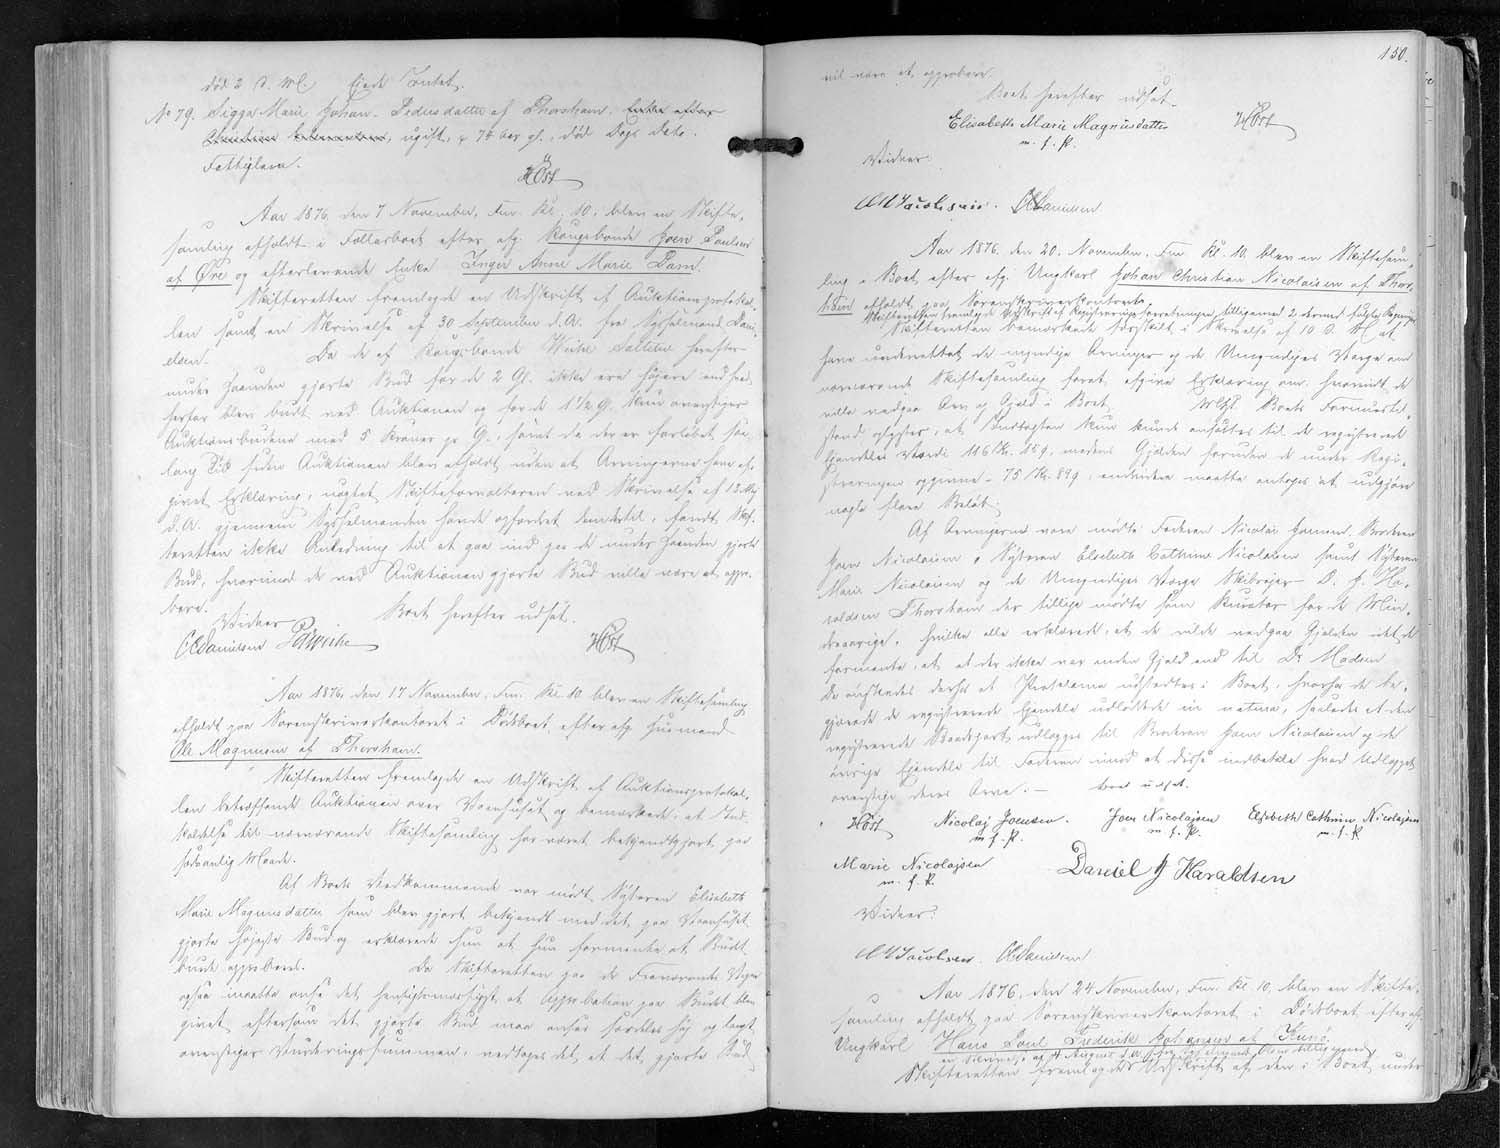 død 2 d. M. Ejede Intet.
No 79. Sigga Marie Johan. Pedersdatter af Thorshavn. Enke efter
ugift, 74 Aar gl., død Dags Dato.
Fattiglem.
Høst
Aar 1876, den 7 November, Fm. Kl. 10, blev en Skifte-
samling afholdt i Fællesboet efter afg. Kongsbonde Joen Poulsen
af Øre og efterlevende Enke Inger Anne Marie Dam.
Skifteretten fremlagde en Udskrift af Auktionsprotokol-
len samt en Skrivelse af 30 September d.A. fra Sysselmand Dani-
elsen. Da de af Kongsbonde herefter
under Haanden gjorte Bud for de 2 Gl. ikke ere højere end hvad
derfor blev budt ved Auktionen og for de 1 1/2 G. kun overstiger
Auktionsbudene med 5 Kroner pr G., samt da der er forløbet saa
lang Tid siden Auktionen blev afholdt uden at Arvingerne have af-
givet Erklæring, uagtet Skifteforvalteren ved Skrivelse af 12 Maj
d.A. gjennem Sysselmanden havde opfordret dem dertil, fandt Skif-
teretten ikke Anledning til at gaa ind paa de under Haanden gjorte
Bud, hvorimod de ved Auktionen gjorte Bud ville være at appro-
bere. Boet herefter udsat.
Vidner
C E Danielsen Høst
Aar 1876, den 17 November, Fm. Kl. 10 blev en Skiftesamling
afholdt paa Sorenskriverkontoret i Dødsboet efter afg. Husmand
Ole Magnussen af Thorshavn.
Skifteretten fremlagde en Udskrift af Auktionsprotokol-
len betræffende Auktionen over Vaanhuset og bemærkede, at Ind-
kaldelse til nærværende Skiftesamling har været bekjendtgjort paa
sædvanlig Maade.
Af Boets Vedkommende var mødt Søsteren Elisabeth
Marie Magnusdatter som blev gjort bekjendt med det paa Vaanhuset
gjorte højeste Bud og erklærede hun at hun formente at Budet
burde approberes. Da Skifteretten paa de Fraværendes Vegne
ogsaa maatte anse det hensigtsmæssigst, at Approbation paa Budet blev
givet, eftersom det gjorte Bud maa anses særdeles høj og langt
overstiger Vurderingssummen, vedtoges det at det gjorte Bud
150.
vil være at approbere.
Boet herefter udsat.
Elisabeth Marie Magnusdatter Høst
m. f. P.
Vidner:
A M Jacobsen. C E Danielsen
Aar 1876, den 20. November, Fm. Kl. 10, blev en Skiftesam-
ling i Boet efter afg. Ungkarl Johan Christian Nicolaisen af Thors-
havn afholdt paa Sorenskriverkontoret.
Skifteretten fremlagde Udskrift af Registreringsforretningen, tilligemed 2 dermed fulgte Regninger
Skifteretten bemærkede særskilt i Skrivelse af 10 d. M. at
have underrettet de myndige Arvinger og de Umyndiges Værge om
nærværende Skiftesamling foret afgive Erklæring om, hvorvidt de
ville vedgaa Arv og Gjæld i Boet. Boets Formuestil-
stand oplystes, at Indtægten kun kunde ansættes til de registrerede
Ejendeles Værdi 116 Kr. 15 Ø, medens Gjælden foruden de under Regi-
streringen opgivne 75 Kr. 89 Ø, endvidere maatte antages at udgjøre
nogle flere Beløb.
Af Arvingerne vare mødte: Faderen Nicolai Joensen, Broderen
Joen Nicolaisen, Søsteren Elsebeth Cathrine Nicolaisen samt Søsteren
Marie Nicolaisen og de Umyndiges Værge Skibsejer D. J. Ha-
raldsen Thorshavn der tillige mødte som Kurator for de Min-
dreaarige, hvilke alle erklærede, at de vilde vedgaa Gjælden idet de
formente, at der ikke var anden Gjæld end til Dr. Madsen
De ønskedes derfor at Proklama udstedtes i Boet, hvorfor de be-
gjærede de registrerede Ejendele udloddede in natura, saaledes at den
registrerede Baadspart udlægges til Broderen Joen Nicolaisen og de
øvrige Ejendele til Faderen imod at disse indbetale hvad Udlægget
overstige deres Arve. — Boet udsat.
Høst Nicolaj Joensen. Joen Nicolajsen Elsebeth Cathrine Nicolajsen
m. f. P. m. f. P. m. f. P.
Marie Nicolajsen Daniel J Haraldsen
m. f. P.
Vidner:
A M Jacobsen. C E Danielsen
Aar 1876, den 24 November, Fm. Kl. 10, blev en Skifte-
samling afholdt paa Sorenskriverkontoret i Dødsboet efter afg.
Ungkarl Hans Poul Frederik Johansen af Kunø.
en Skrivelse af 4 August d.A. fra Sysselmand Olsen tilligemed
Skifteretten fremlagde Udskrift af den i Boet under